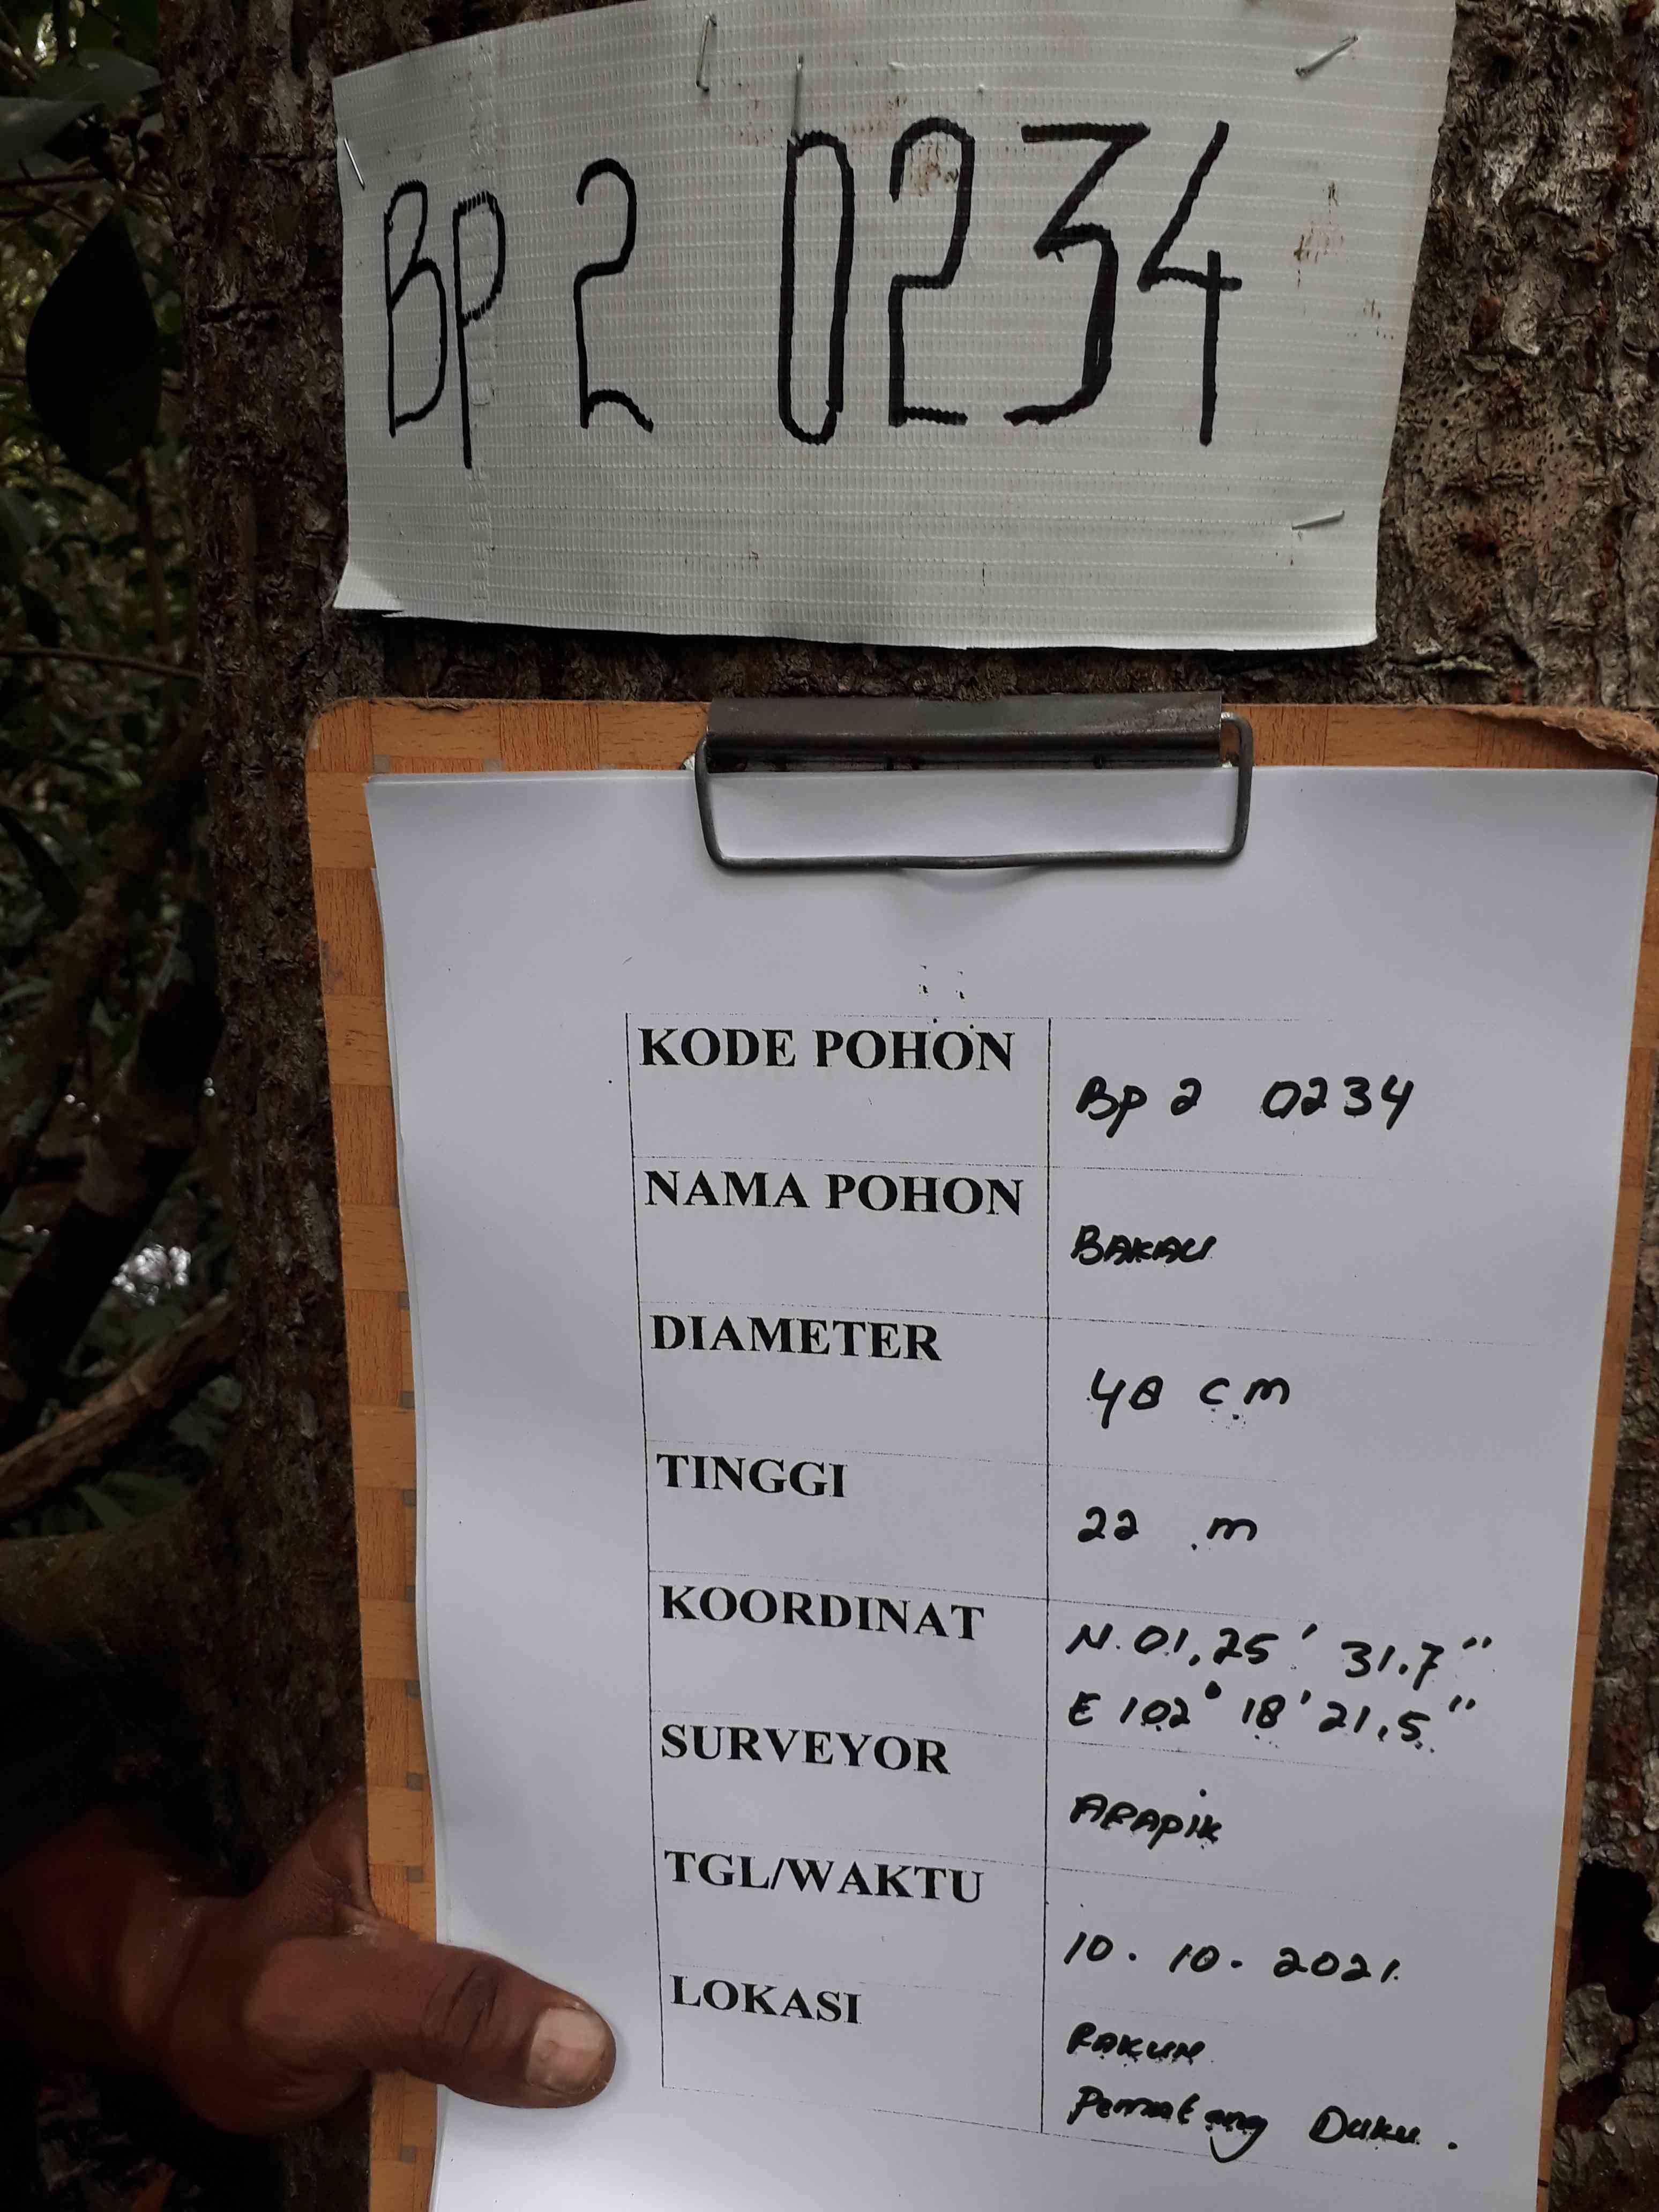 BP 2 0234
KODE POHON
Bp 2 0234
NAMA POHON
BAKAU
DIAMETER
48 cm
TINGGI
22 m
KOORDINAT
N. 01,25' 31.7"
E 102° 18' 21,5"
SURVEYOR
ARAPIK
TGL/WAKTU
10. 10. 2021.
LOKASI
Pematang Duku.